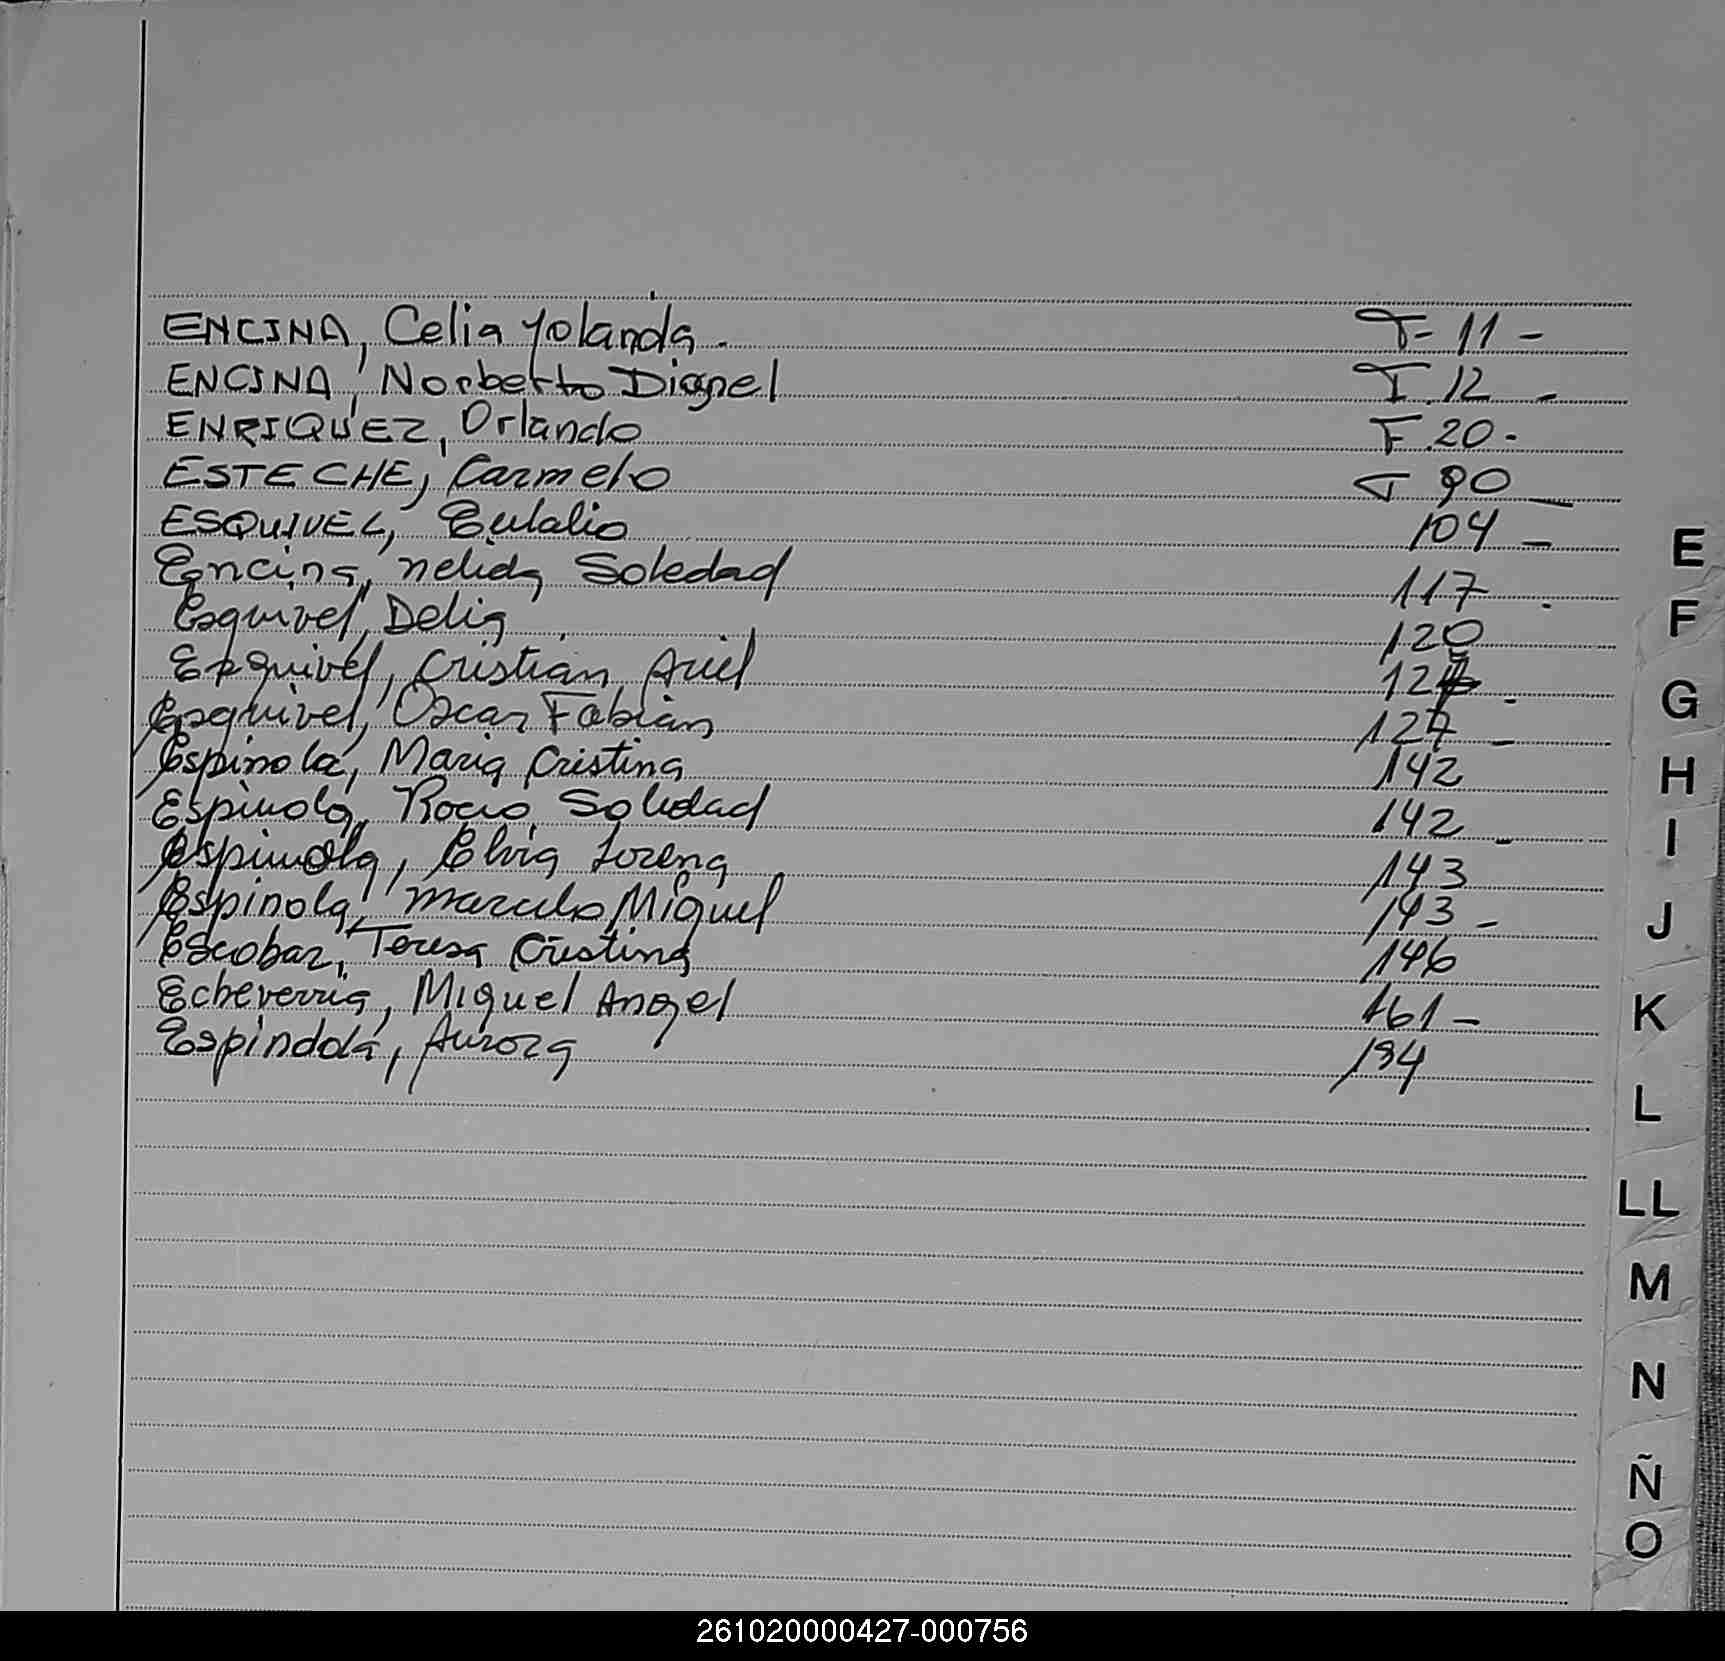 ENCINA, Celia Yolanda. F- 11 -
ENCINA, Norberto Dignel F. 12 -
ENRIQUEZ, Orlando F. 20 -
ESTECHE, Carmelo F 90 -
ESQUIVEL, Eulalio 104 -
Encina, nelida Soledad 117 .
Esquivel, Delia 120
Esquivel, Cristian Ariel -
Esquivel, Oscar Fabian 127 -
Espinola, Maria Cristina 142
Espinola, Rocio Soledad 142 -
Espinola, Elvia Lorena 143
Espinola, Marcelo Miguel 143 -
Escobar, Teresa Cristina 146
Echeverria, Miguel Angel 161 -
Espindola, Aurora 194
E
F
G
H
I
J
K
L
LL
M
N
Ñ
O
261020000427-000756